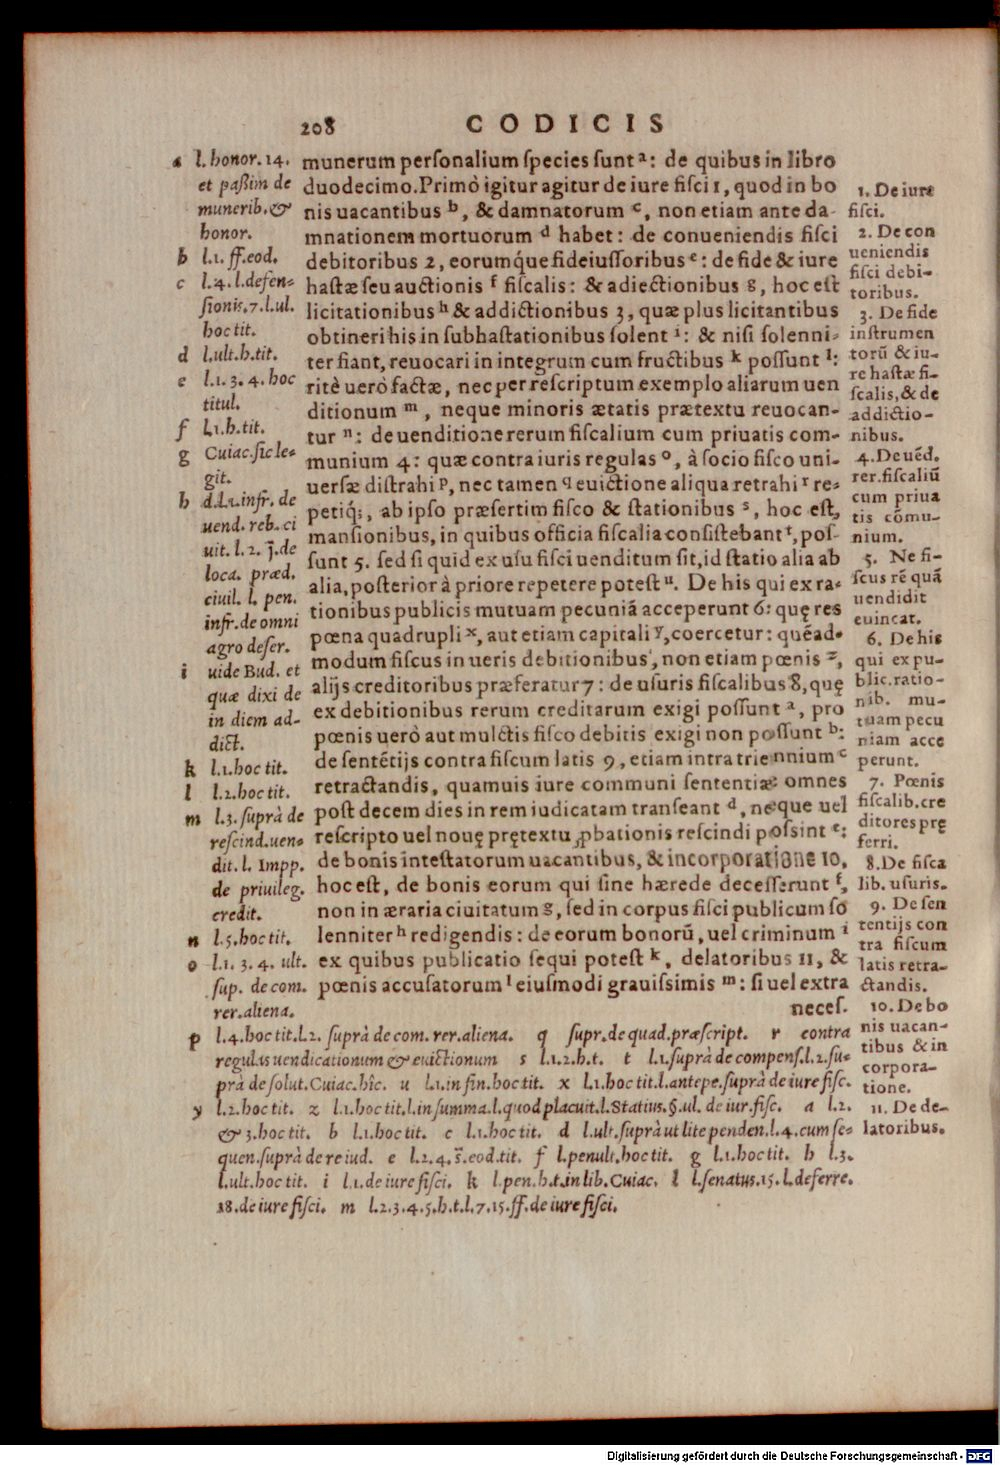 208 CODICIS
munerum personalium species sunt a: de quibus in libro
duodecimo. Primò igitur agitur de iure fisci 1, quod in bo
nis uacantibus b, & damnatorum c, non etiam ante da-
mnationem mortuorum d habet: de conueniendis fisci
debitoribus 2, eorumq́ue fideiussoribus e: de fide & iure
hastæ seu auctionis f fiscalis: & adiectionibus g, hoc est
licitationibus h & addictionibus 3, quæ plus licitantibus
obtineri his in subhastationibus solent i: & nisi solenni-
ter fiant, reuocari in integrum cum fructibus k possunt l:
ritè uerò factæ, nec per rescriptum exemplo aliarum uen
ditionum m, neque minoris ætatis prætextu reuocan-
tur n: de uenditione rerum fiscalium cum priuatis com-
munium 4: quæ contra iuris regulas o, à socio fisco uni-
uersæ distrahi p, nec tamen q euictione aliqua retrahi r re-
petiq́;, ab ipso præsertim fisco & stationibus s, hoc est,
mansionibus, in quibus officia fiscalia consistebant t, pos-
sunt 5. sed si quid ex usu fisci uenditum sit, id statio alia ab
alia, posterior à priore repetere potest u. De his qui ex ra-
tionibus publicis mutuam pecuniā acceperunt 6: quę res
pœna quadrupli x, aut etiam capitali y, coercetur: quēad-
modum fiscus in ueris debitionibus, non etiam pœnis z,
alijs creditoribus præferatur 7: de usuris fiscalibus 8, quę
ex debitionibus rerum creditarum exigi possunt a, pro
pœnis uerò aut mulctis fisco debitis exigi non possunt b:
de sentētijs contra fiscum latis 9, etiam intra triennium c
retractandis, quamuis iure communi sententiæ omnes
post decem dies in rem iudicatam transeant d, neque uel
rescripto uel nouę prętextu ꝓbationis rescindi possint e:
de bonis intestatorum uacantibus, & incorporatione 10,
hoc est, de bonis eorum qui sine hærede decesserunt f,
non in æraria ciuitatum g, sed in corpus fisci publicum so
lenniter h redigendis: de eorum bonorū, uel criminum i
ex quibus publicatio sequi potest k, delatoribus 11, &
pœnis accusatorum l eiusmodi grauissimis m: si uel extra
neces.
a l. honor. 14.
et paßim de
munerib. &
honor.
b l.1. ff. eod.
c l.4. l. defen-
sionis. 7. l. ul.
hoc tit.
d l. ult. h. tit.
e l.1.3.4. hoc
titul.
f l.1. h. tit.
g Cuiac. sic le-
git.
h d. l.1. infr. de
uend. reb. ci
uit. l.2. j. de
loca. præd.
ciuil. l. pen.
infr. de omni
agro deser.
i uide Bud. et
quæ dixi de
in diem ad-
dict.
k l.1. hoc tit.
l l.2. hoc tit.
m l.3. suprà de
rescind. uen-
dit. l. Impp.
de priuileg.
credit.
n l.5. hoc tit.
o l.1. 3. 4. ult.
sup. de com.
rer. aliena.
p l.4. hoc tit. l.2. suprà de com. rer. aliena. q supr. de quad. præscript. r contra
regulas uendicationum & euictionum s l.1.2. h. t. t l.1. suprà de compens. l.2. su-
prà de solut. Cuiac. hîc. u l.1. in fin. hoc tit. x l.1. hoc tit. l. antepe. suprà de iure fisc.
y l.2. hoc tit. z l.1. hoc tit. l. in summa. l. quod placuit. l. Statius. §. ul. de iur. fisc. a l.2.
& 3. hoc tit. b l.1. hoc tit. c l.1. hoc tit. d l. ult. suprà ut lite penden. l.4. cum se-
quen. suprà de re iud. e l.2.4. s̄. eod. tit. f l. penult. hoc tit. g l.1. hoc tit. h l.3.
l. ult. hoc tit. i l.1. de iure fisci. k l. pen. h. t. in lib. Cuiac. l l. senatus. 15. l. deferre.
18. de iure fisci. m l.2.3.4.5. h. t. l.7.15. ff. de iure fisci.
1. De iure
fisci.
2. De con
ueniendis
fisci debi-
toribus.
3. De fide
instrumen
torū & iu-
re hastæ fi-
scalis, & de
addictio-
nibus.
4. De uēd.
rer. fiscaliū
cum priua
tis cōmu-
nium.
5. Ne fi-
scus rē quā
uendidit
euincat.
6. De his
qui ex pu-
blic. ratio-
nib. mu-
tuam pecu
niam acce
perunt.
7. Pœnis
fiscalib. cre
ditores prę
ferri.
8. De fisca
lib. usuris.
9. De sen
tentijs con
tra fiscum
latis retra-
ctandis.
10. De bo
nis uacan-
tibus & in
corpora-
tione.
11. De de-
latoribus.
Digitalisierung gefördert durch die Deutsche Forschungsgemeinschaft - DFG